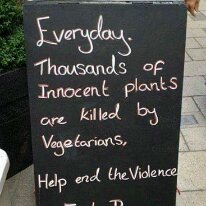 Everyday.
Thousands of
Innocent plants
are killed by
Vegetarians.
Help end the Violence